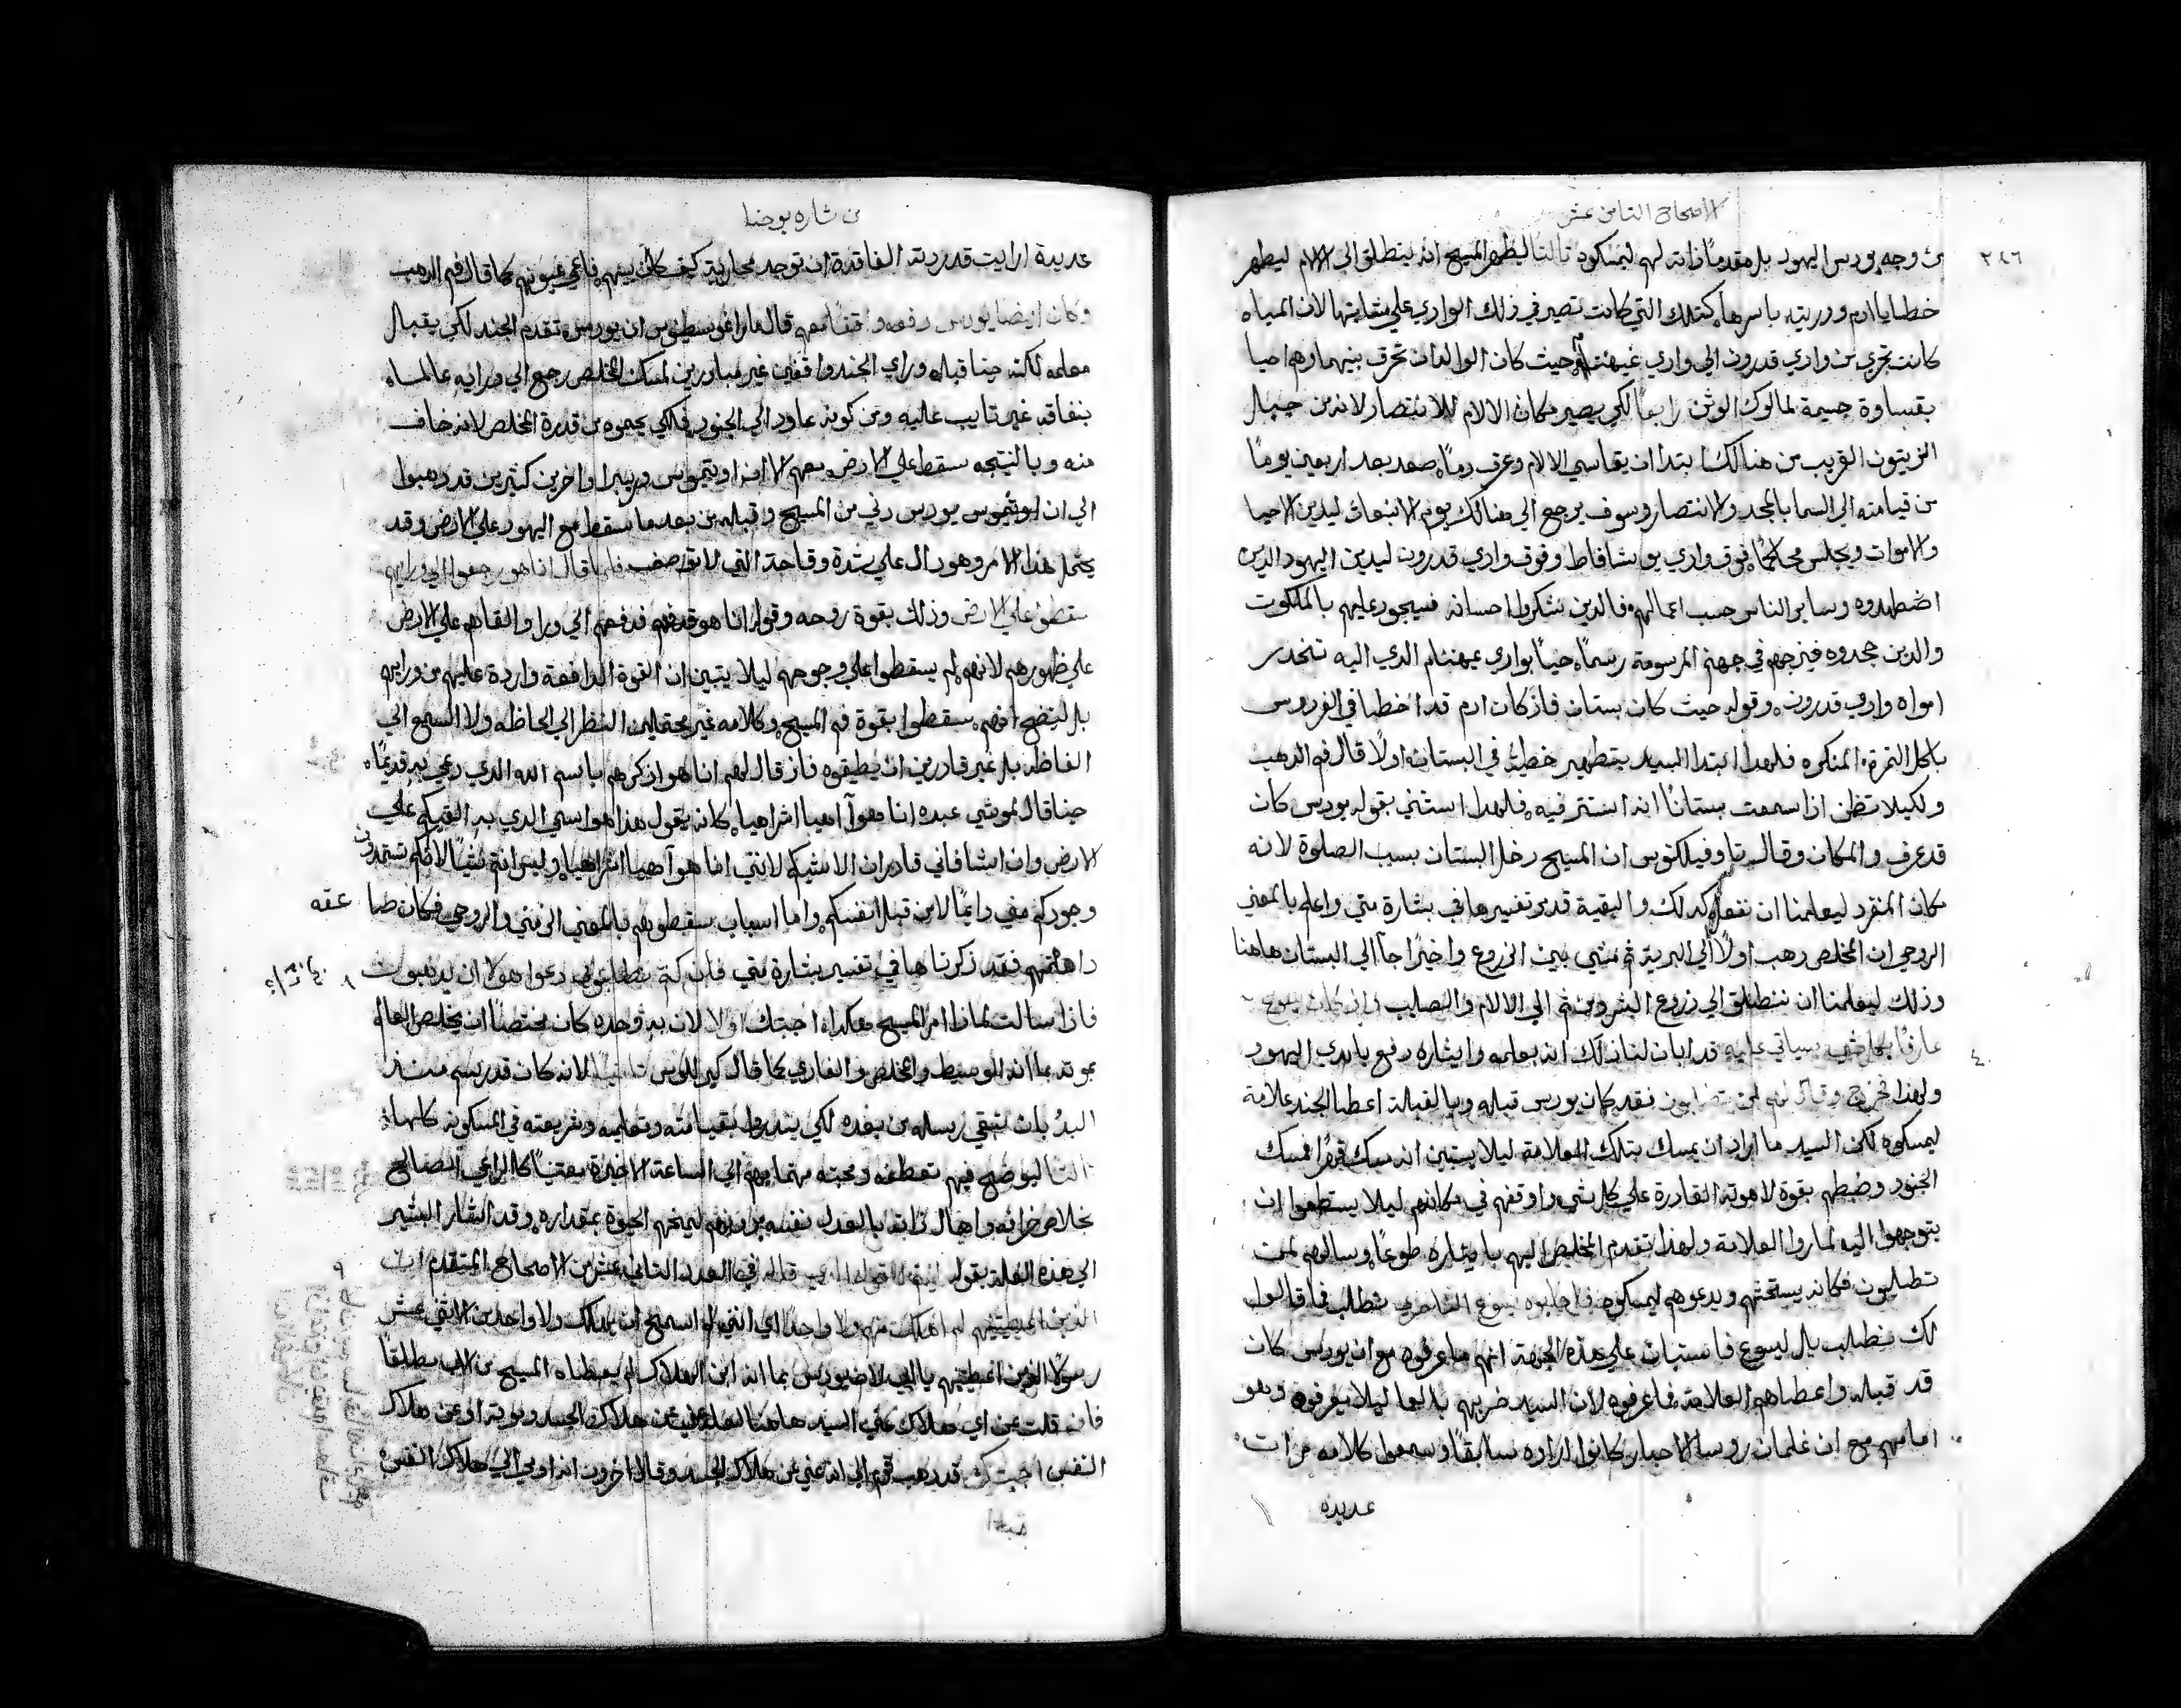 الاصحاح الثامن عشر
٢٤٦
من وجه يودس اليهود بل مقدمًا ذاته لهم ليمسكوه ثالثا ليظهر المسيح انه ينطلق الي الالام ليطهر
خطايا ادم وذريته باسرها كتلك التي كانت تصير في ذلك الوادي علي مثابتها لان المياه
كانت تجري من وادي قدرون الي وادي حيث كان الوالدان تحرق بنيهما وهم احيا
بقساوة جسيمة لمالوك الوثن رابعًا لكي يصير مكان الالام للانتصار لانه من جبال
الزيتون القريب من هنالك ابتدا ان يقاسي الالام وعرق دمًا صعد بعد اربعين يومًا
من قيامته الي السما بالمجد والانتصار وسوف يرجع الي هنالك يوم الانبعاث ليدين الاحيا
والاموات ويجلس محاكمًا فوق وادي يوشافاط وفوق وادي قدرون ليدين اليهود الدين
اضطهدوه وساير الناس حسب اعمالهم فالدين شكروا احسانه فسيجود عليهم بالملكوت
والدين جحدوه فيزجهم في جهنم المرسومة رسمًا حسيًا بوادي عيهنام الدي اليه تنحدر
امواه وادي قدرون وقوله حيث كان بستان فاذ كان ادم قد اخطا في الفردوس
باكل الثمرة المنكره فلهدا ابتدا السيد بتطهير خطيته في البستان اولًا قال فم الدهب
ولكيلا تظن اذا سمعت بستانًا انه استتر فيه فلهدا استثني بقوله يودس كان
قد عرف والمكان وقال تاوفيلكتوس ان المسيح دخل البستان بسبب الصلوة لانه
مكان المنفرد ليعلمنا ان نفعل كدلك والبقية قد مر تفسيرها في بشارة متي واعلم بالمعني
الروحي ان المخلص دهب اولًا الي البرية ثم مشي بين الزروع واخيرًا جا الي البستان هاهنا
وذلك ليعلمنا ان ننطلق الي زروع البشر ومن ثم الي الالام والصليب وان كان يسوع
٤
عارفًا بكل شي سياتي عليه قد ابان لنا ذلك انه بعلمه وايثاره دفع بايدي اليهود
ولهدا خرج وقال لهم لمن تطلبون فقد كان يودس قبله وبالقبلة اعطا الجند علامة
ليمسكوه لكن السيد ما اراد ان يمسك بتلك العلامة ليلا يستبين انه مسك قهرًا فمسك
الجنود وضبطهم بقوة لاهوته القادرة علي كل شي واوقفهم في مكانهم ليلا يستطعوا ان
يتوجهوا اليه لما راوا العلامة ولهدا تقدم المخلص اليهم بايثاره طوعًا وسالهم لمن
تطلبون فكانه يستحثهم ويدعوهم ليمسكوه فاجابوه يسوع الناصري نطلب فما قالوا
لك نطلب بل ليسوع فاستبان علي هذه الجهة انهم ما عرفوه مع ان يودس كان
قد قبله واعطاهم العلامة فما عرفوه لان السيد ضربهم بالعما ليلا يعرفوه وهو
امامهم مع ان غلمان روسا الاحبار كانوا راوه سابقًا وسمعوا كلامه مرات
عديده
من شاره يوحنا
عديدة ارايت قدرته الفاقدة ان توجد محاربة كيف كان بينهم فاعمي عيونهم كما قال فم الدهب
وكان ايضا يودس دفعه واقفًا معهم قال ماراغوسطينوس ان يودس تقدم الجند لكي يقبال
معلمه لكنه حينا قبله وراي الجند واقفين غير مبادرين لمسك المخلص رجع الي ورايه عالما
بنفاقه غير تايب عليه ومن كونه عاود الي الجنود فلكي يحموه من قدرة المخلص لانه خاف
منه وبالنتيجه سقط علي الارض معهم الا ان اوتيميوس واخرين كثيرين قد دهبوا
الي ان يودس دني من المسيح وقبله من بعد ما سقط مع اليهود علي الارض وقد
يحتمل هدا الامر وهو دال علي شدة وقاحة التي لا توصف فلما قال انا هو رجعوا الي ورايهم
سقطوا علي الارض وذلك بقوة روحه وقوله انا هو قد دفعهم الي ورا والقاهم علي الارض
علي ظهورهم لانهم لم يسقطوا علي وجوههم ليلا يتبين ان القوة الدافعة واردة عليهم من ورايهم
بل ليتضح انهم سقطوا بقوة فم المسيح وكلامه غير محتملين النظر الي الحاظه ولا السمع الي
الفاظه بل غير قادرين ان يطيقوه فاذ قال لهم انا هو اذكرهم باسم الله الدي دعي به قديمًا
حينا قال لموسي عبده انا هو اهيا اشراهيا كانه يقول هذا هو اسمي الدي به القيكم علي
الارض وان اشا فاني قادر ان الاشيكم لانني انا هو اهيا اشراهيا وليس انتم شيًا لانكم تستمدون
وجودكم مني دايمًا لا من قبل انفسكم واما اسباب سقطوهم بالمعني الزمني والروحي فكان طبا عقه
داهمتهم فقد ذكرناها في تفسير بشارة متي فان كنتم تطلبوني دعوا هولا ان يدهبوا ٨
فاذا سالت لماذا امر المسيح هكدا اجبتك اولا لان به وحده كان مختصًا ان يخلص العالم
بموته بما انه الوسيط والمخلص والفادي كما قال كيرللوس ثانيًا لانه كان قد رسم منذ
البدُ بان تبقي رسله من بعده لكي يندروا بقيامته وتعليمه وشريعته في المسكونه كلها
ثالثا ليوضح فيهم تعطفه ومحبته مهتما بهم الي الساعة الاخيرة معتنيًا كالراعي الصالح
بخلاص خرافه واهال ذاته بالعدل نفسه ليمنحهم الحيوة بمقداره وقد اشار البشير
الي هذه العلة بقوله قاله في العدد الثاني عشر من الاصحاح المتقدم ان ٩
الذين اعطيتنيهم لم اهلك منهم ولا واحدًا اي انني لم اسمح ان يهلك ولا واحد من الاثني عشر
رسولًا الذين اعطيتنيهم يا ابي لان يودس بما انه ابن الهلاك لم يعطاه المسيح من الاب مطلقًا
فان قلت عن اي هلاك عني السيد هاهنا عن هلاك الجسد وموته او عن هلاك
النفس اجبتك قد دهب قوم الي انه عني عن هلاك الجسد وقال اخرون انه اومي الي هلاك النفس